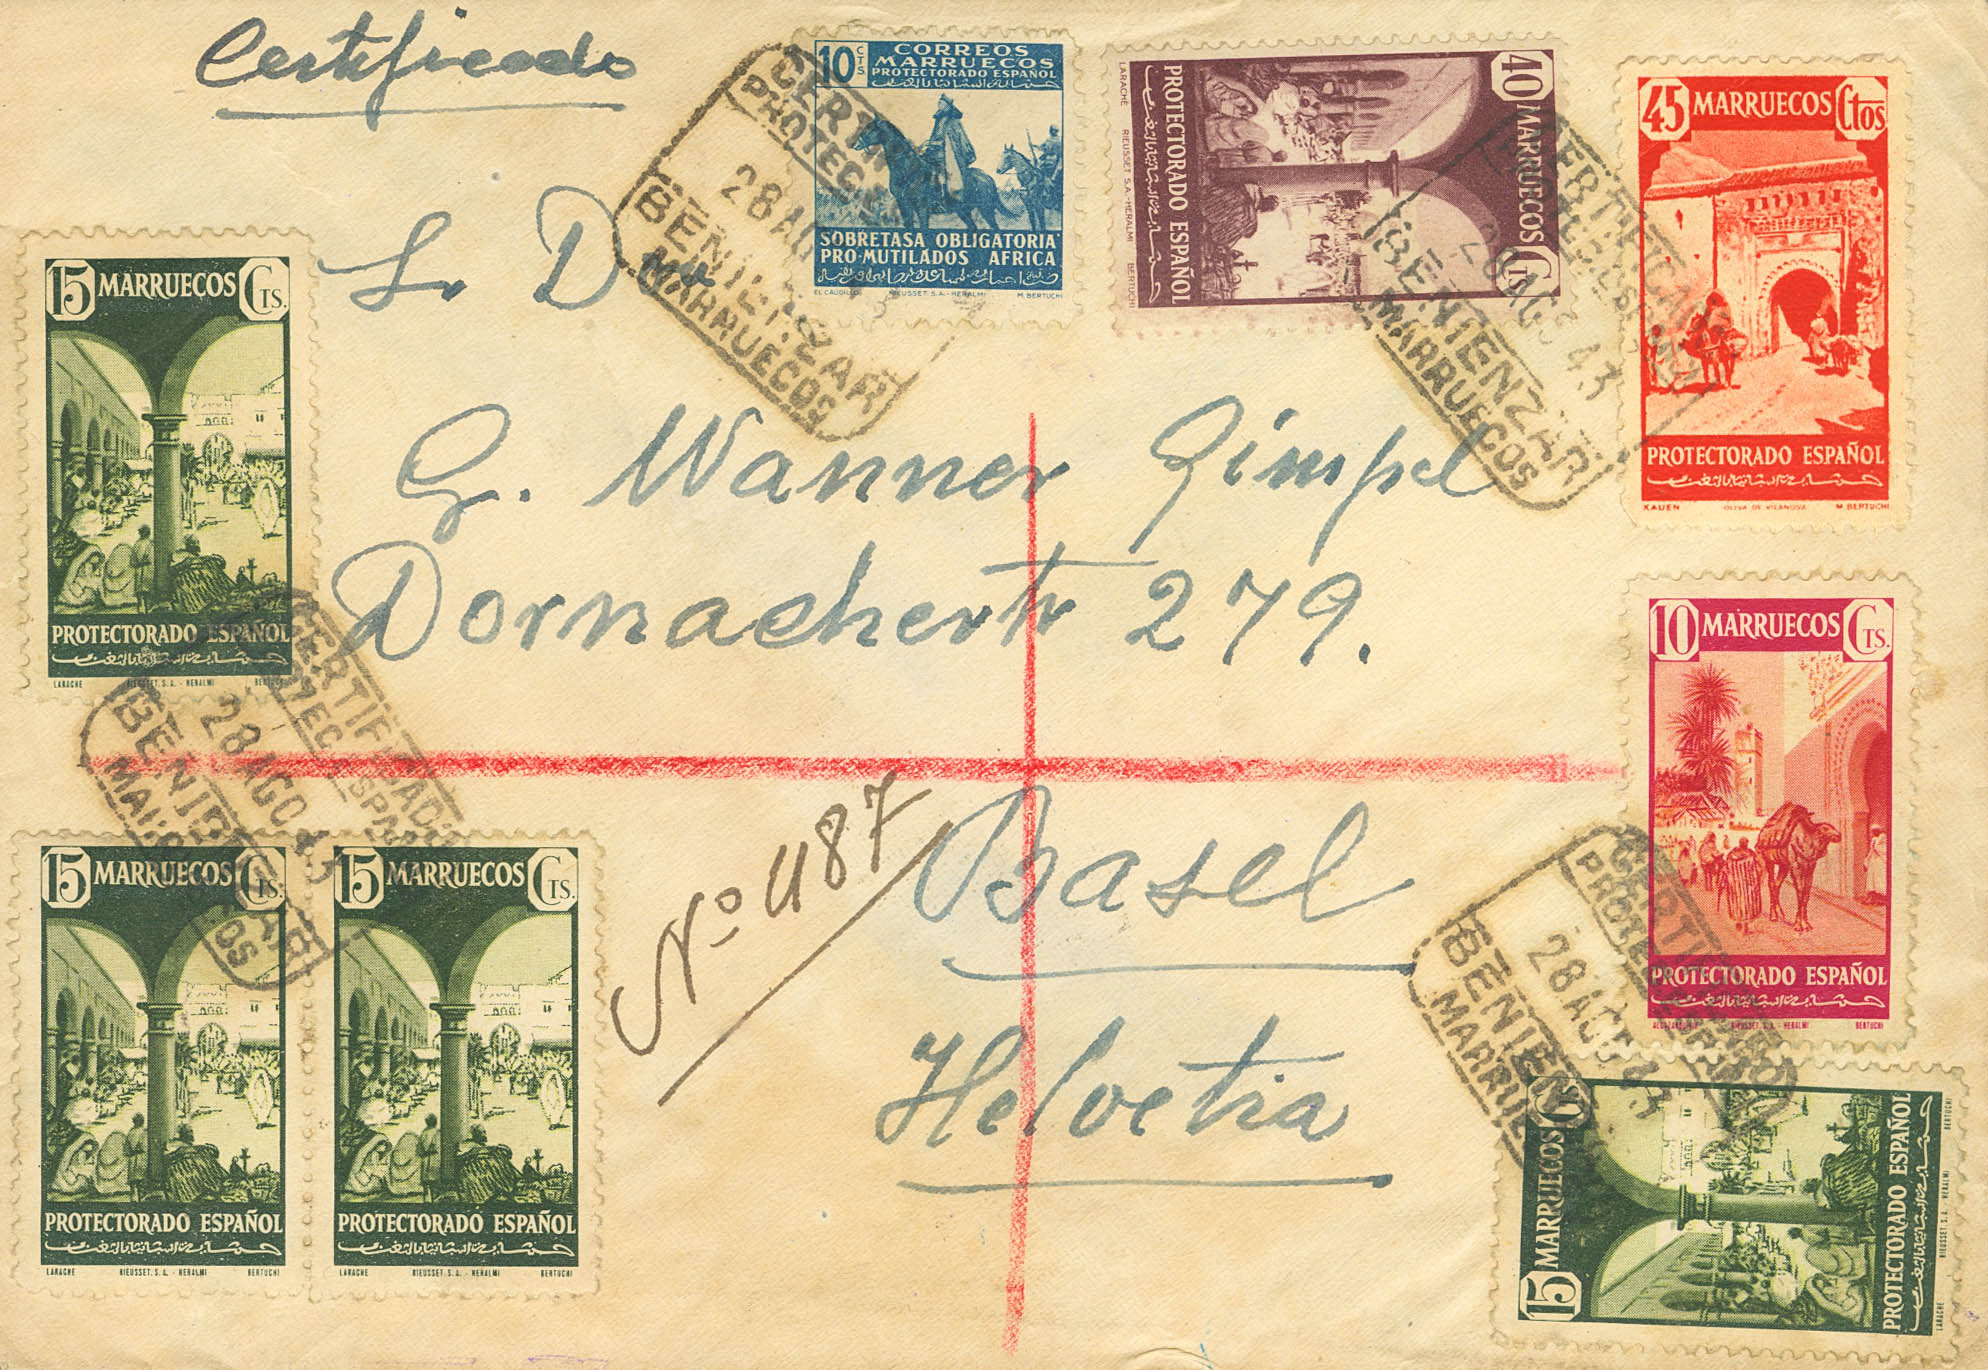 Certificado
10 CTS.
CORREOS
MARRUECOS
PROTECTORADO ESPAÑOL
SOBRETASA OBLIGATORIA
PRO-MUTILADOS AFRICA
EL CAUDILLO RIEUSSET. S.A. - HERALMI M. BERTUCHI
40 MARRUECOS CTS.
PROTECTORADO ESPAÑOL
LARACHE RIEUSSET S.A.-HERALMI BERTUCHI
45 MARRUECOS Ctos
PROTECTORADO ESPAÑOL
XAUEN OLIVA DE VILANOVA M BERTUCHI
CERTIFICADO
28 AGO
BENITENZAR
MARRUECOS
CERTIFICADO
28 AGO 43
BENITENZAR
MARRUECOS
Sr D
G. Wanner Gimpel
Dornacherstr 279.
Basel
Helvetia
Nº 487
15 MARRUECOS CTS.
PROTECTORADO ESPAÑOL
LARACHE RIEUSSET. S.A. - HERALMI BERTUCHI
CERTIFICADO
28 AGO 43
15 MARRUECOS CTS.
PROTECTORADO ESPAÑOL
LARACHE RIEUSSET. S.A. - HERALMI BERTUCHI
15 MARRUECOS CTS.
PROTECTORADO ESPAÑOL
LARACHE RIEUSSET. S.A. - HERALMI BERTUCHI
10 MARRUECOS CTS.
PROTECTORADO ESPAÑOL
RIEUSSET S.A. - HERALMI BERTUCHI
28 AGO 43
15 MARRUECOS C
PROTECTORADO ESPAÑOL
LARACHE RIEUSSET. S.A. - HERALMI BERTUCHI